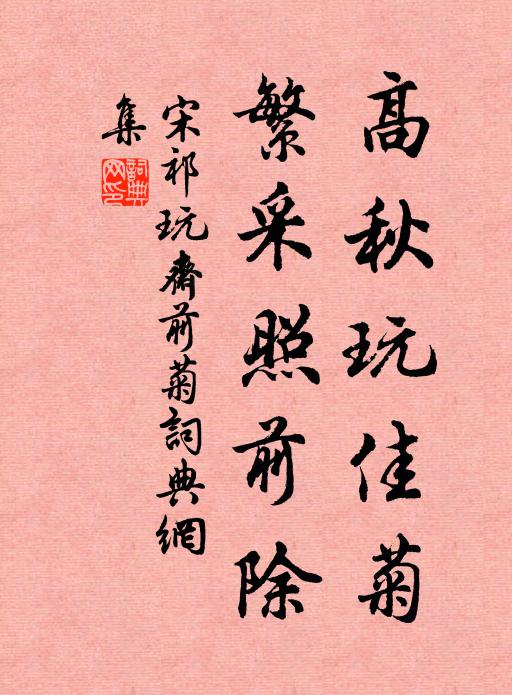 高秋玩佳菊
繁采照前除
宋祁玩齋前菊詞典網
集
詞典網印